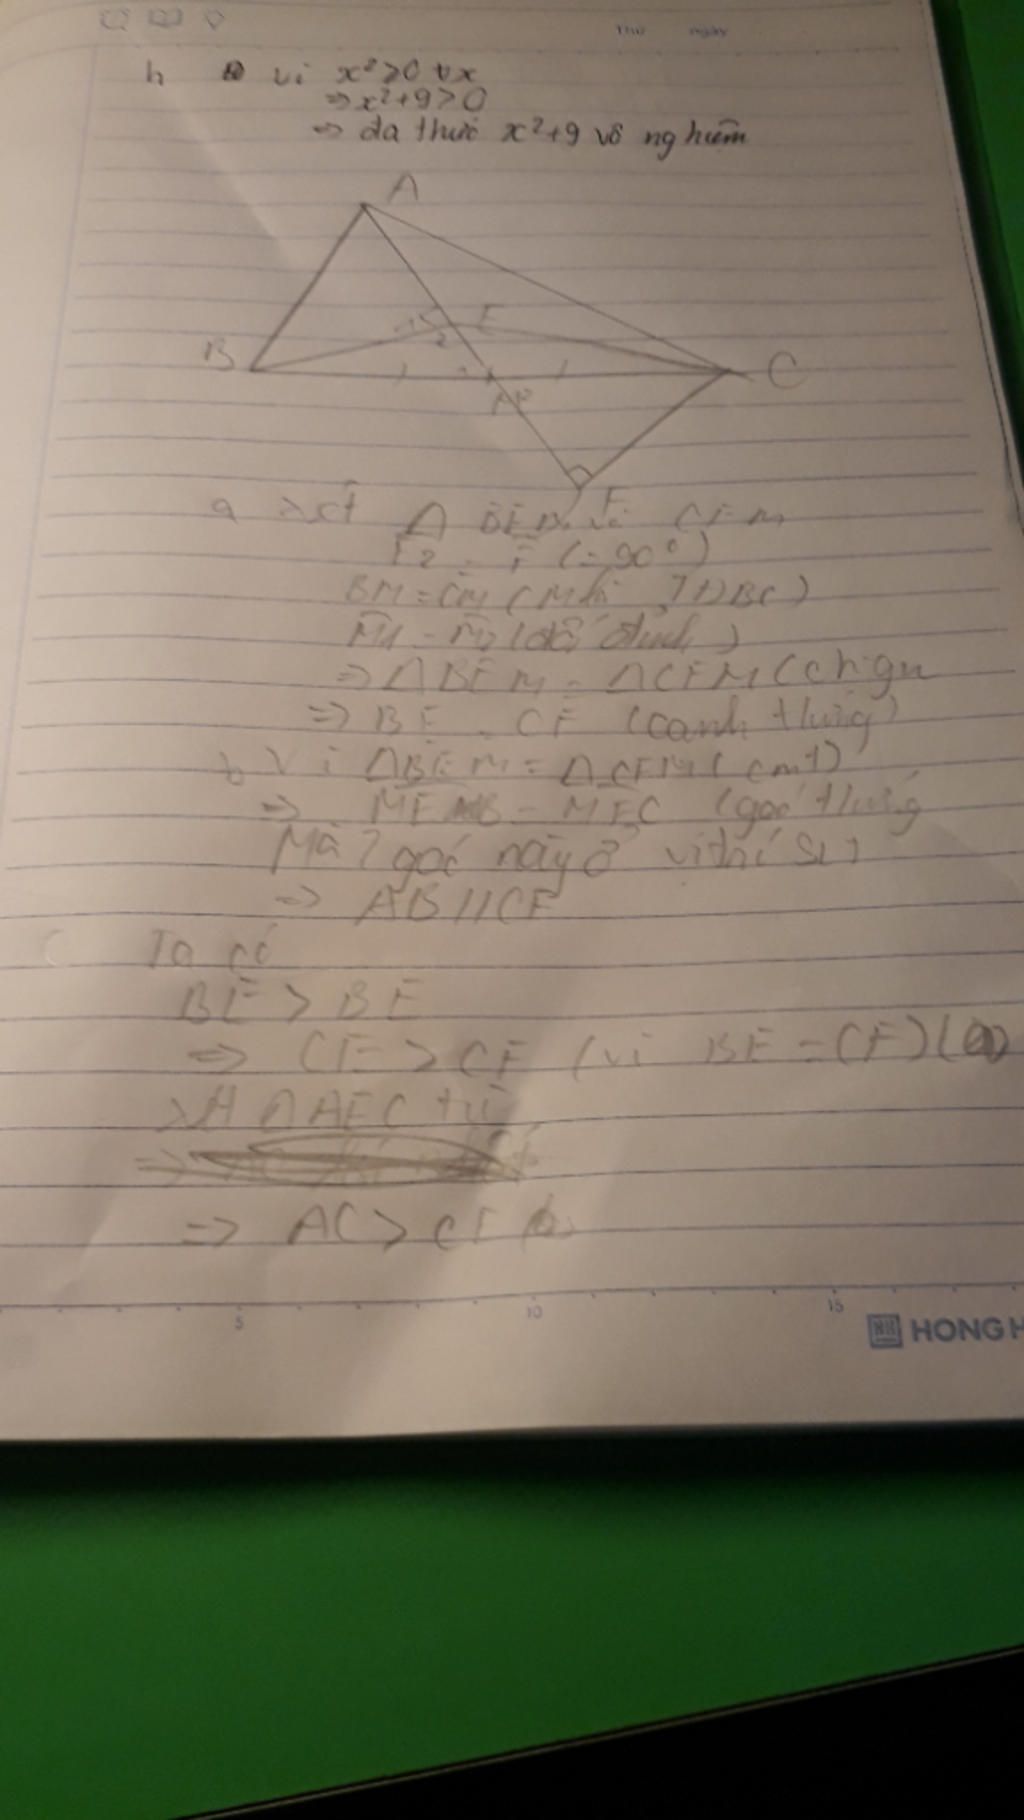 Thứ ngày
h vì x²≥0 ∀x
⇒x²+9>0
⇒ đa thức x²+9 vô nghiệm
A
E
2
B
C
F
a xét Δ BEM và CFM
E2 = F (=90°)
BM=CM (M là TĐBC)
M1 = M2 (đối đỉnh)
⇒ΔBEM = ΔCFM (ch-gn
⇒ BE = CF (cạnh t/ứng)
b Vì ΔBEM = ΔCFM (cmt)
⇒ = (góc t/ứng
Mà 2 góc này ở vị trí SLT
⇒ AB//CF
C Ta có
BE > BE
⇒ CE > CF (vì BE = CF)
xét ΔAEC
⇒ AC > CF
5 10 15
HONG H